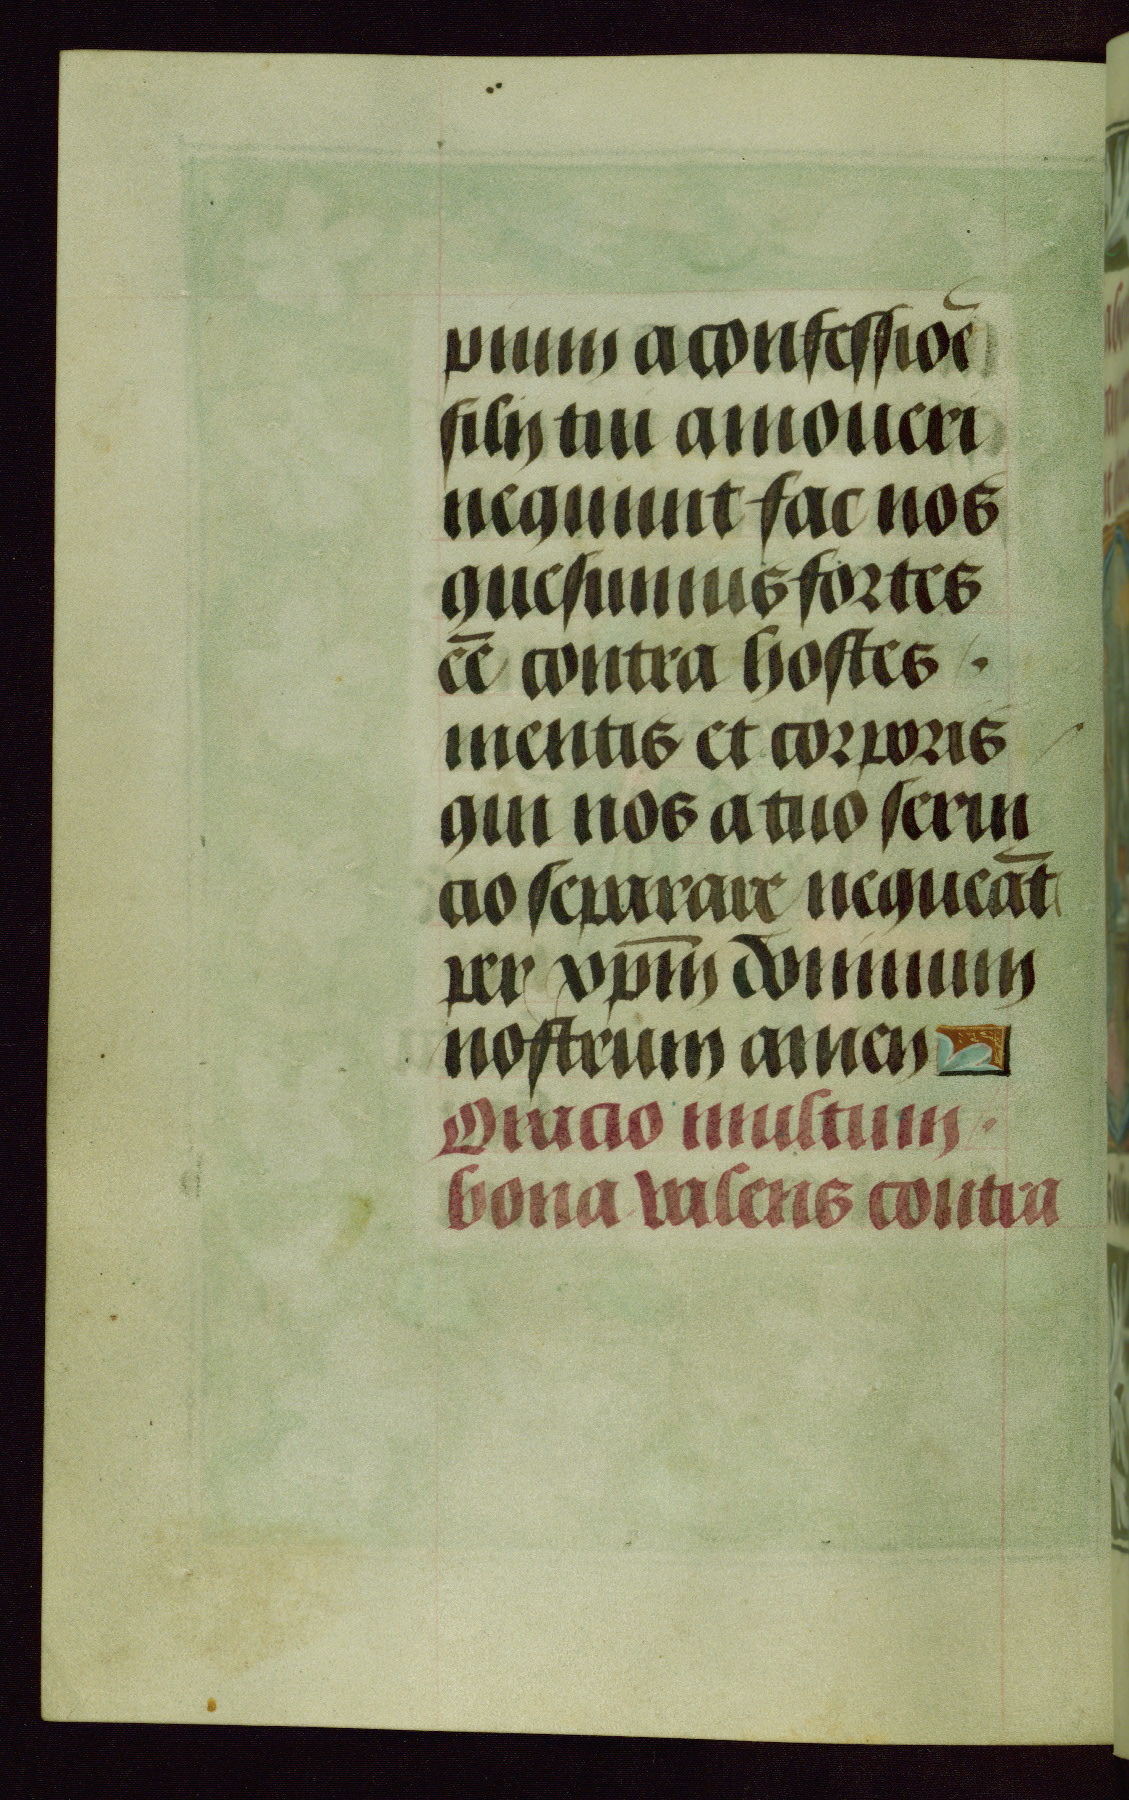 pnum a confessioē
filij tui amoueri
nequiunt fac nos
quesumus fortes
ēē contra hostes
mentis et corporis
qui nos a tuo serui
cio separare nequeāt
per xp̄m dominum
nostrum amen
Oracio multum
bona valens contra